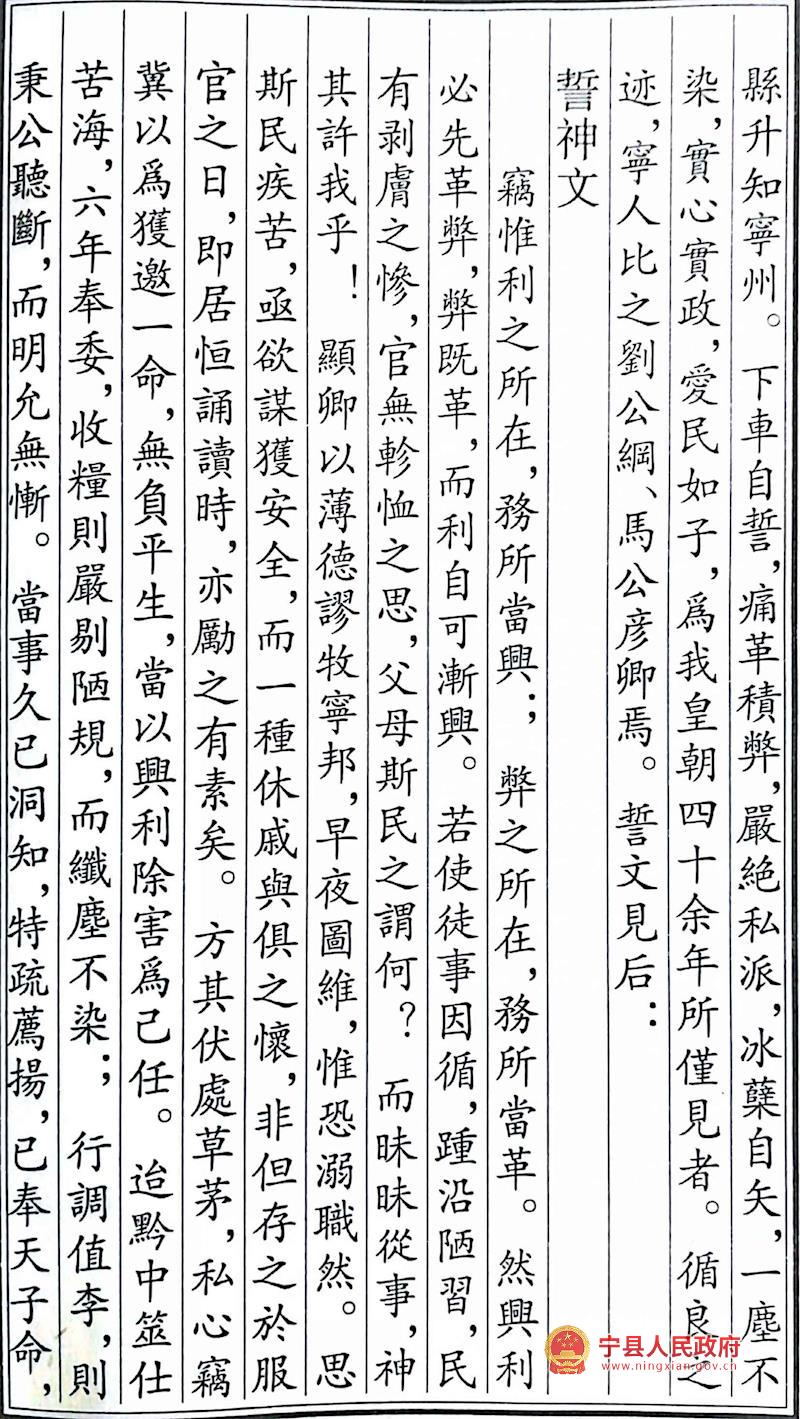 縣升知寧州。下車自誓，痛革積弊，嚴絶私派，冰蘖自矢，一塵不
染，實心實政，愛民如子，爲我皇朝四十余年所僅見者。循良之
迹，寧人比之劉公綱、馬公彦卿焉。誓文見后：
誓神文
竊惟利之所在，務所當興；弊之所在，務所當革。然興利
必先革弊，弊既革，而利自可漸興。若使徒事因循，踵沿陋習，民
有剥膚之慘，官無軫恤之思，父母斯民之謂何？而昧昧從事，神
其許我乎！顯卿以薄德謬牧寧邦，早夜圖維，惟恐溺職然。思
斯民疾苦，亟欲謀獲安全，而一種休戚與俱之懷，非但存之於服
官之日，即居恒誦讀時，亦勵之有素矣。方其伏處草茅，私心竊
冀以爲獲邀一命，無負平生，當以興利除害爲己任。迨黔中筮仕
苦海，六年奉委，收糧則嚴剔陋規，而纖塵不染；行調值李，則
秉公聽斷，而明允無慚。當事久已洞知，特疏薦揚，已奉天子命，
宁县人民政府
www.ningxian.gov.cn